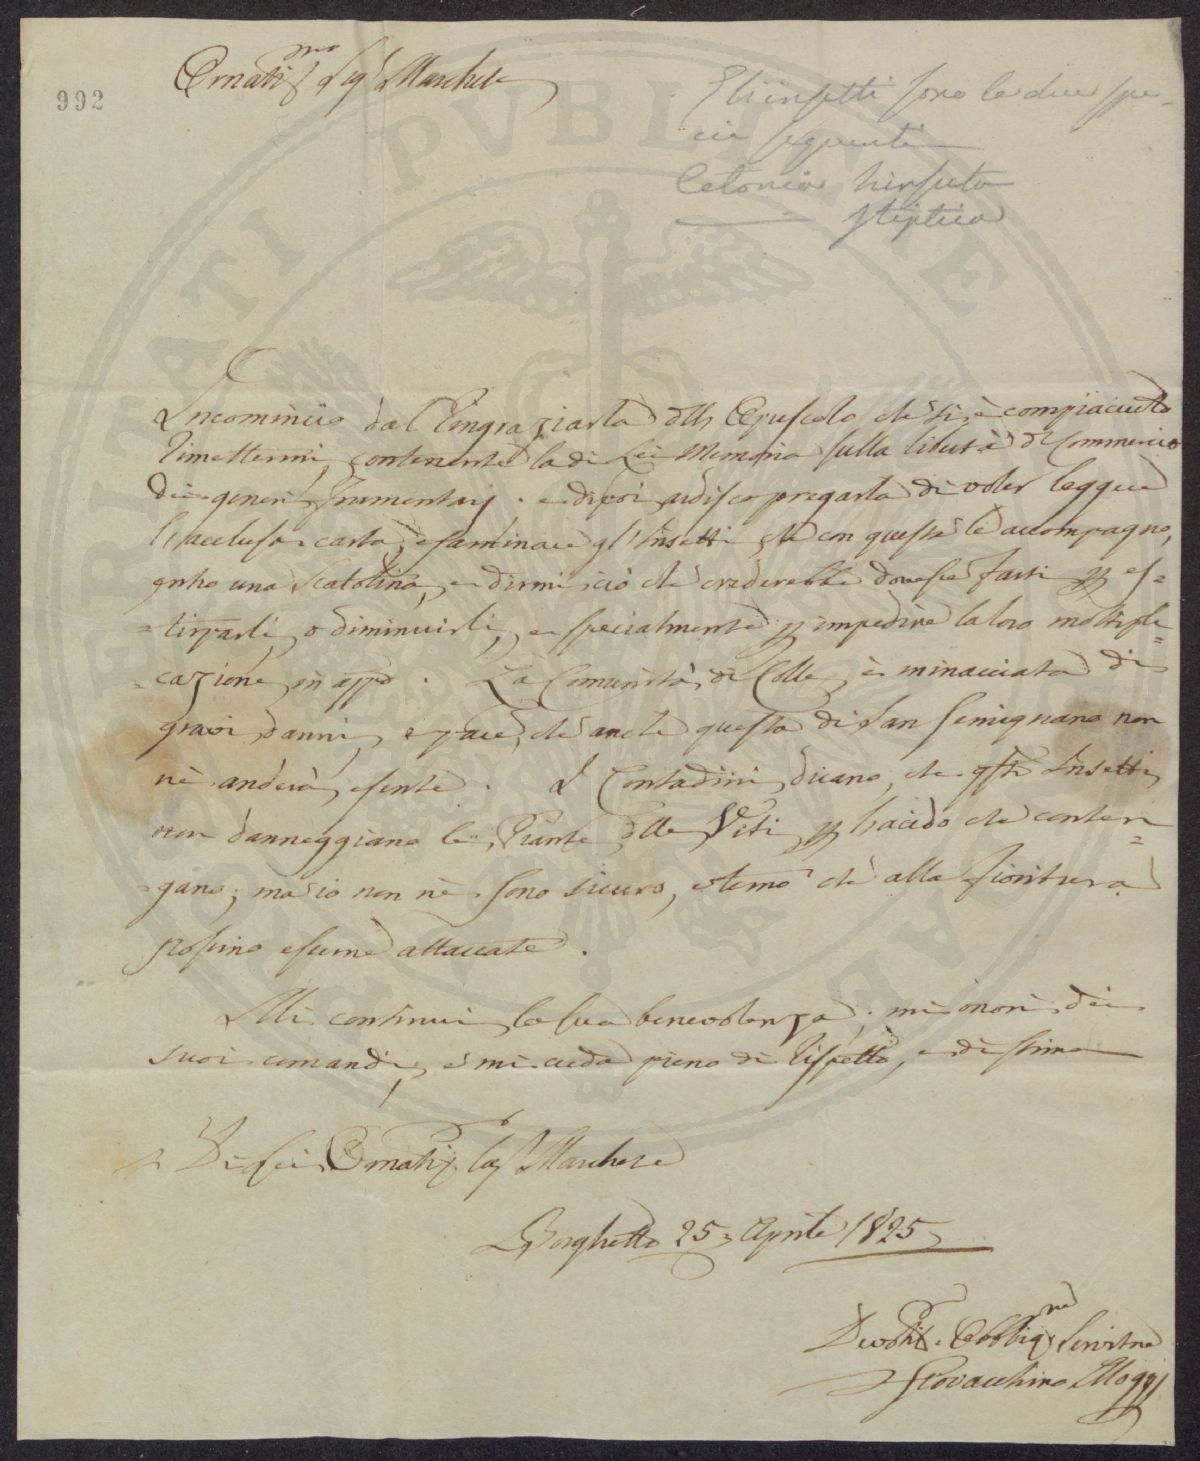 992
Ornatis.mo Sig.r Marchese
Gli insetti sono le due spe-
cie seguenti
Cetonia hirsuta
stiptica
Incomincio dal ringraziarla dello Opuscolo che si è compiaciuto
rimettermi, contenente la di Lei Memoria sulla libertà di Commercio
dei generi frumentarj. e di poi ardisco pregarla di voler leggere
l'acclusa carta, esaminare gl'Insetti che con questa le accompagno,
entro una Scatolina, e dirmi ciò che crederebbe dovesse farsi p es=
=tirparli, o diminuirli, e specialmente p impedire la loro moltipli
=cazione in appo. La Comunità di Colle è minacciata di
gravi danni, e pare, che anche questa di San Gimignano non
nè anderà esente. I Contadini dicano, che gsti Insetti
non danneggiano le Piante dlle Viti p l'acido che conten
=gano; ma io non nè sono sicuro, e temo che alla fioritura
possino esserne attaccate.
Mi continui la sua benevolenza, mi onori dei
suoi comandi, e mi creda pieno di rispetto, e di stima
Di Lei Ornatis Sig.r Marchese
Borghetto 25 Aprile 1825
Devotis. Obblig.mo Servitore
Giovacchino Moggi